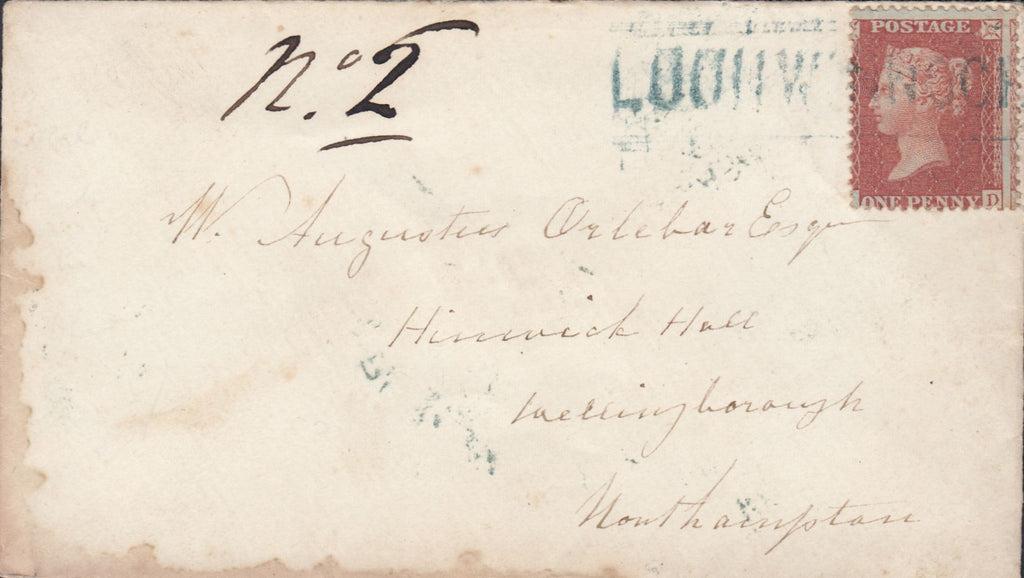 No. 2
LOCHWINNOCH
POSTAGE
ONE PENNY D
W. Augustus Orlebar Esqr
Hinwick Hall
Wellingborough
Northampton